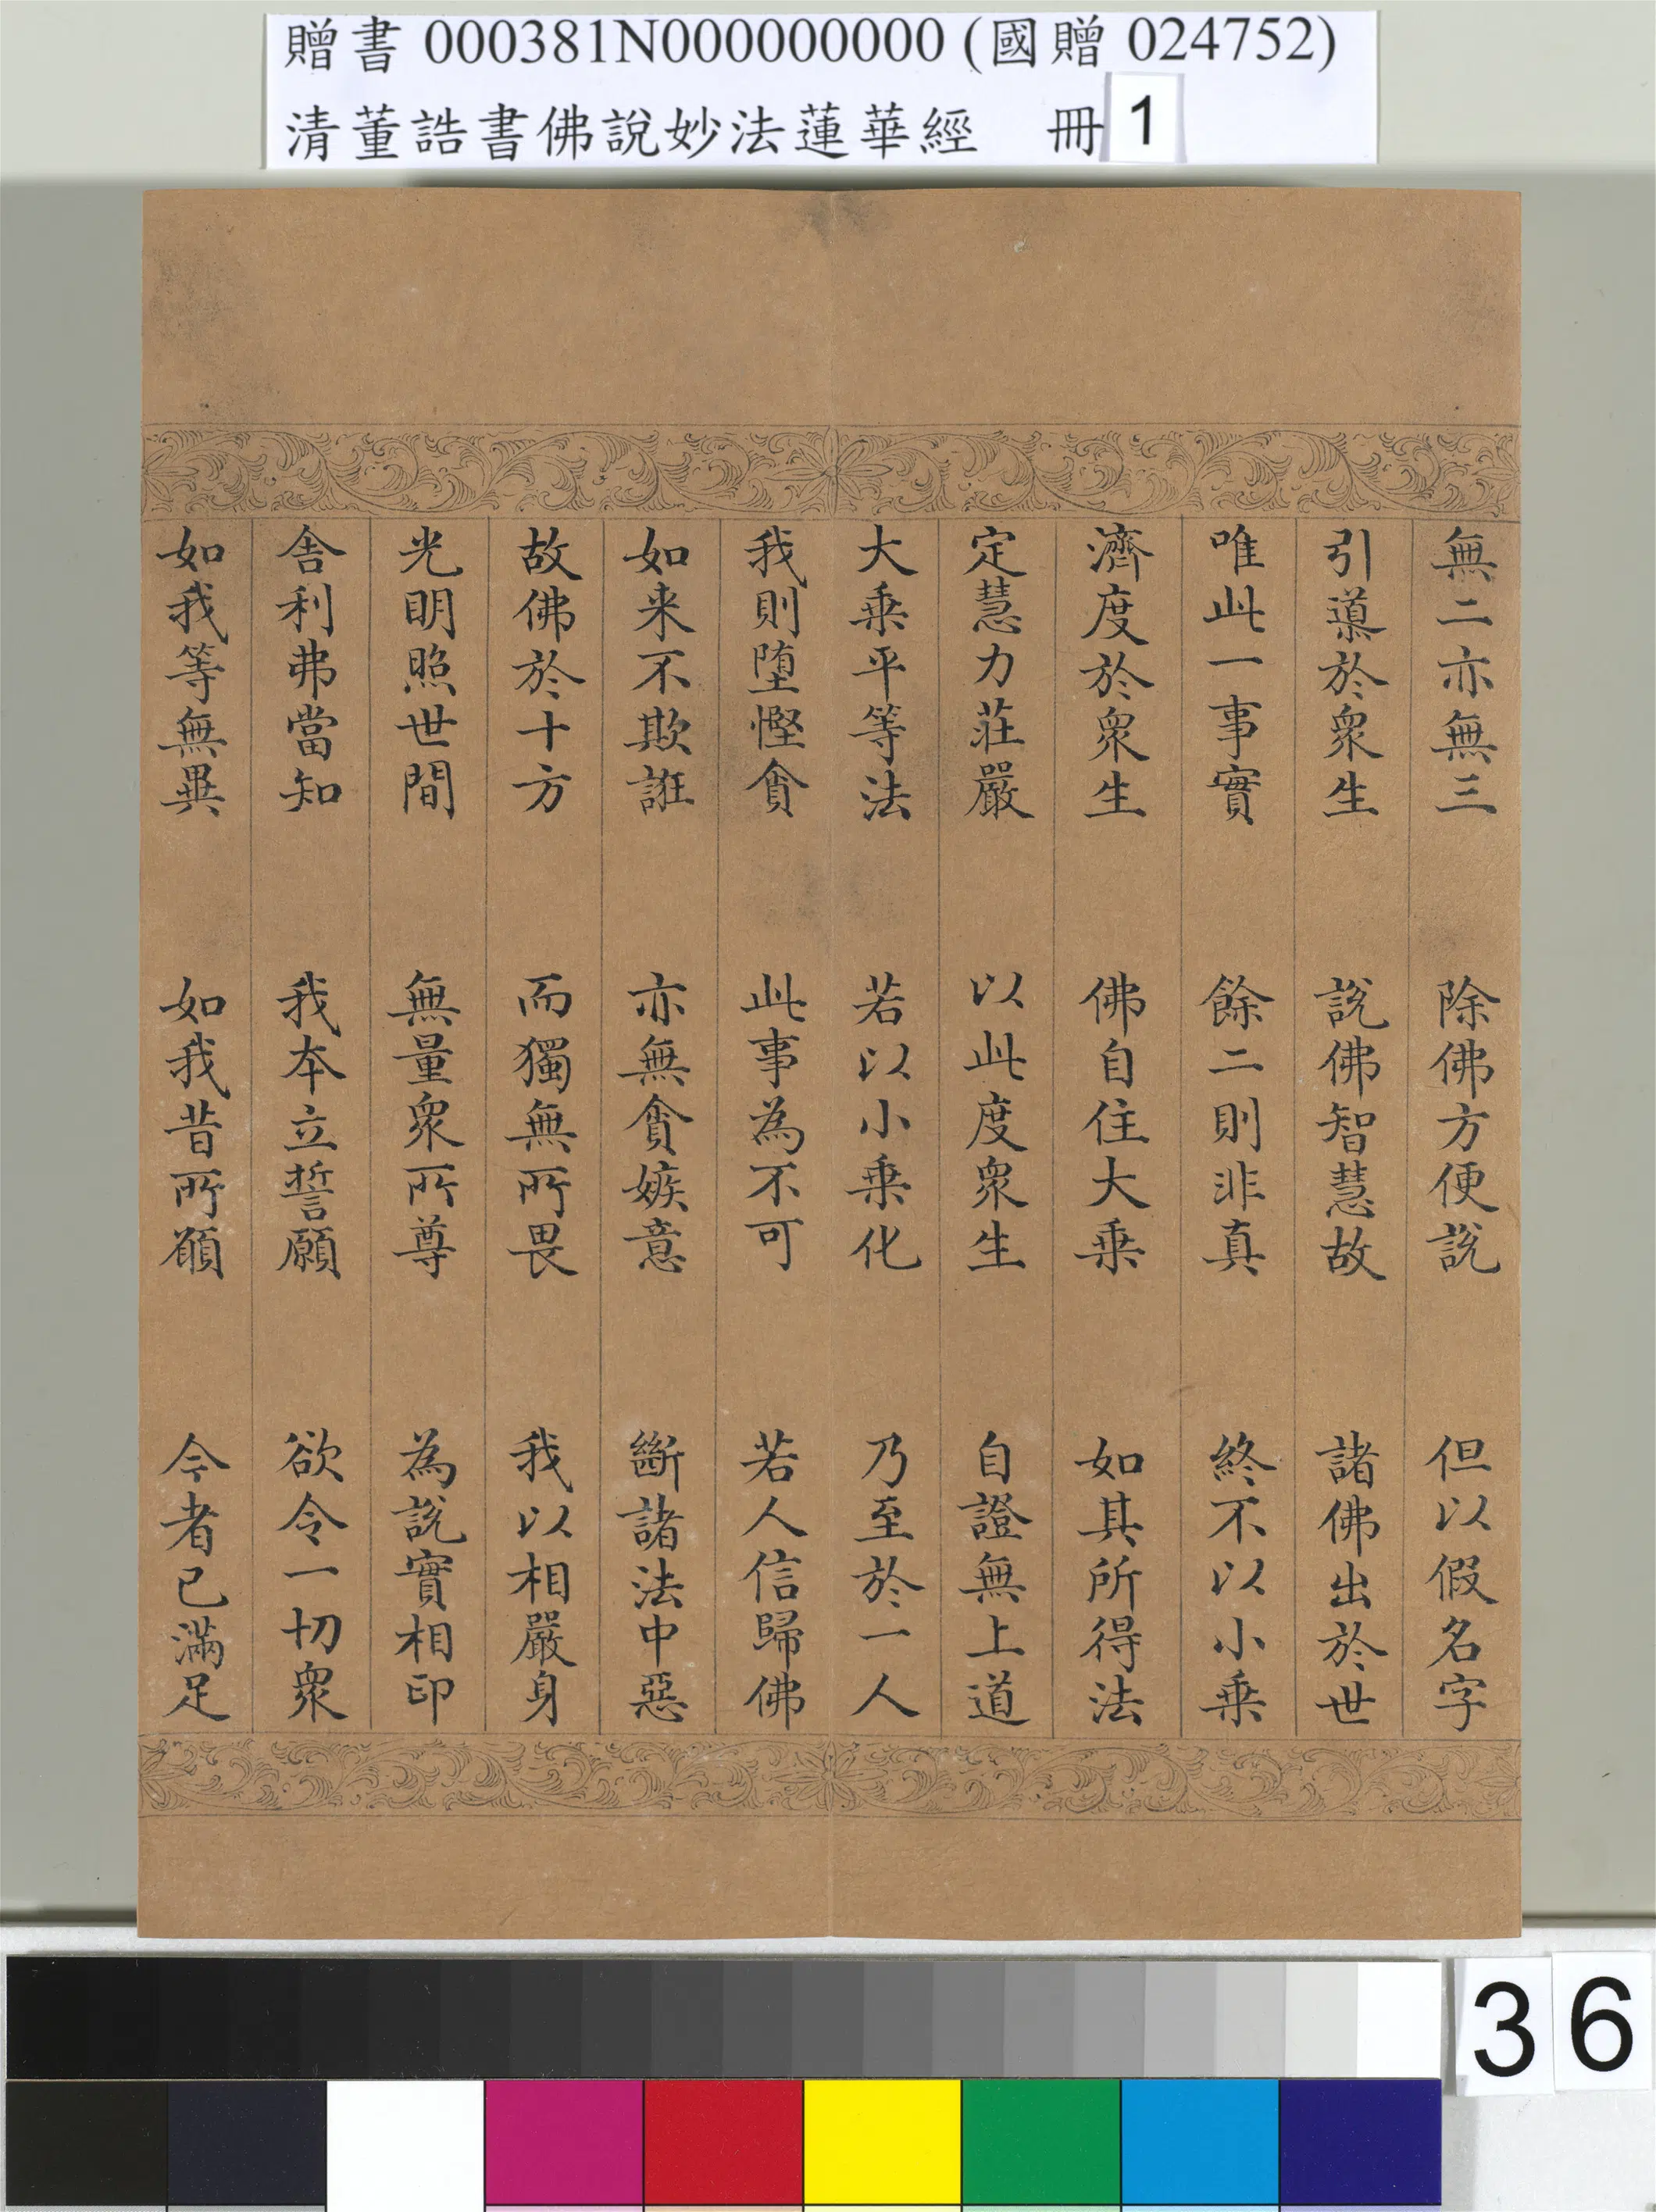 贈書 000381N000000000 (國贈 024752)
清董誥書佛說妙法蓮華經 冊 1
無二亦無三 除佛方便說 但以假名字
引導於衆生 說佛智慧故 諸佛出於世
唯此一事實 餘二則非真 終不以小乗
濟度於衆生 佛自住大乗 如其所得法
定慧力莊嚴 以此度衆生 自證無上道
大乗平等法 若以小乗化 乃至於一人
我則墮慳貪 此事為不可 若人信歸佛
如来不欺誑 亦無貪嫉意 斷諸法中惡
故佛於十方 而獨無所畏 我以相嚴身
光明照世間 無量衆所尊 為說實相印
舍利弗當知 我本立誓願 欲令一切衆
如我等無異 如我昔所願 今者已滿足
36